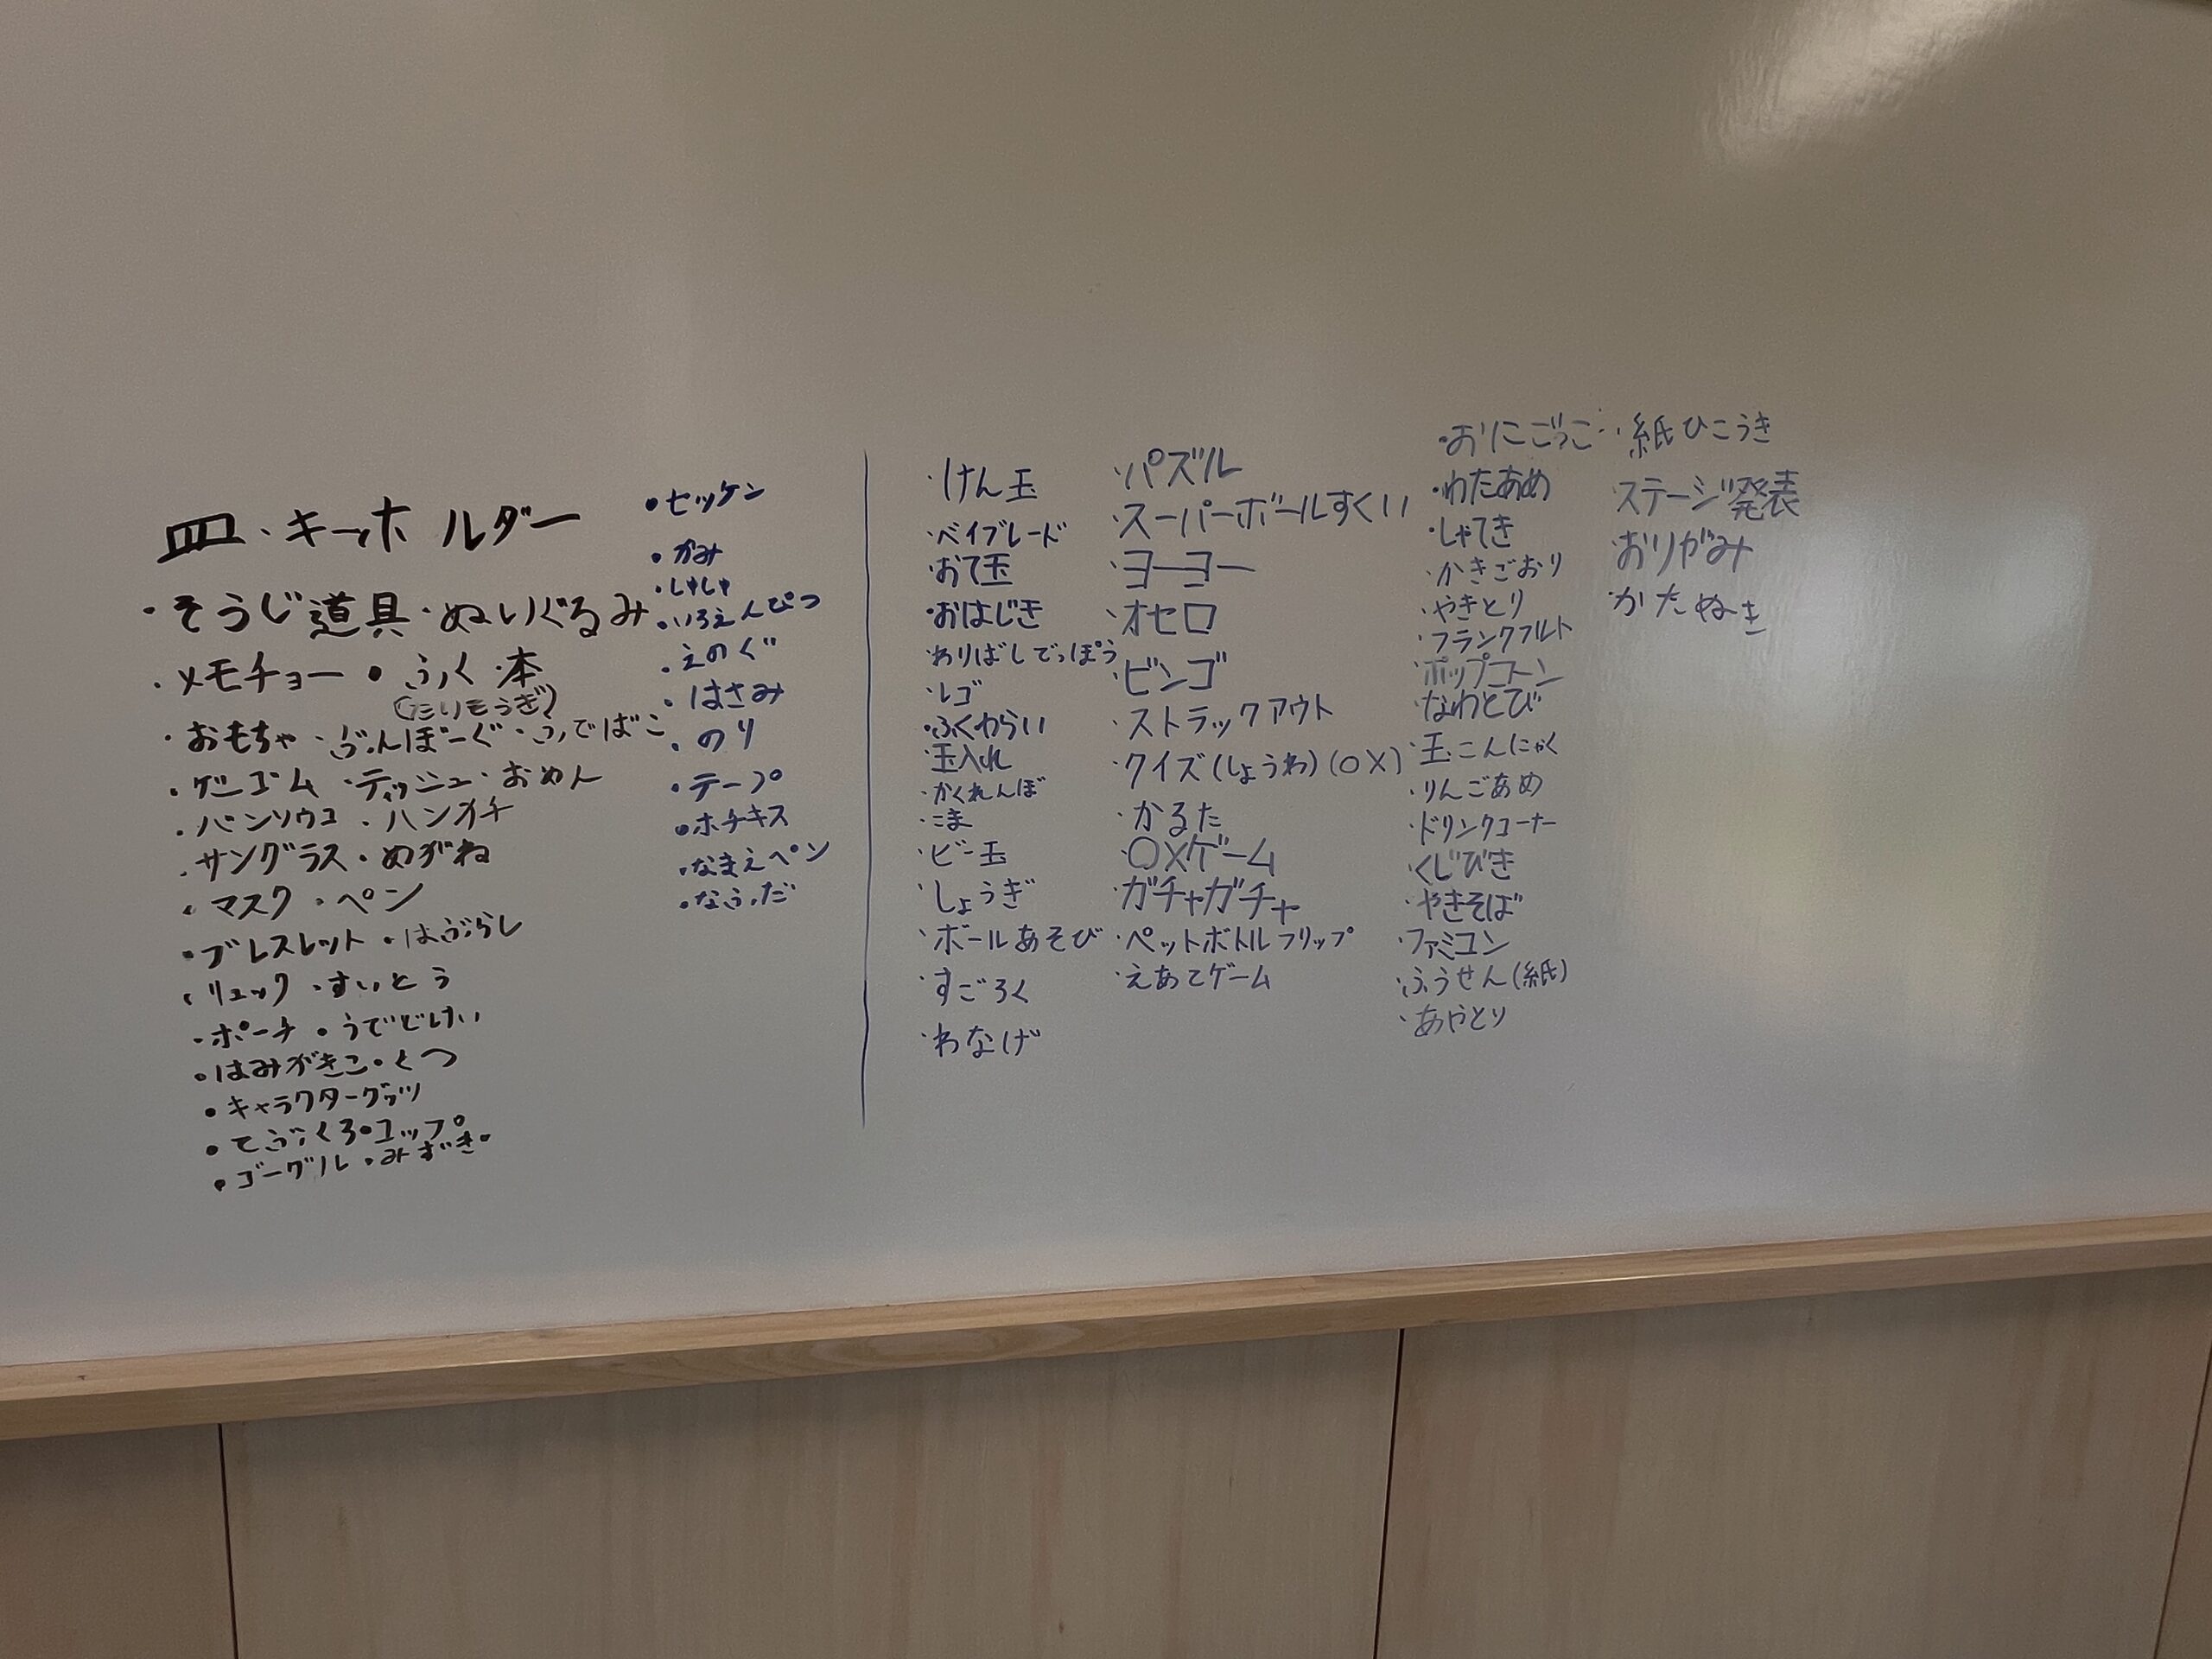 皿・キーホルダー
・そうじ道具・ぬいぐるみ
・メモチョー・ふく・本
・おもちゃ・ぶんぼーぐ・ふでばこ
・ティッシュ・おめん
・バンソウコ・ハンカチ
・サングラス・めがね
・マスク・ペン
・ブレスレット・はぶらし
・リュック・すいとう
・ポーチ・うでどけい
・はみがきこ・くつ
・キャラクターグッツ
・てぶくろ・コップ
・ゴーグル・みずぎ
・セッケン
・かみ
・しゃしゃ
・いろえんぴつ
・えのぐ
・はさみ
・のり
・テープ
・ホチキス
・なまえペン
・なふだ
・けん玉
・ベイブレード
・おて玉
・おはじき
・わりばしでっぽう
・レゴ
・ふくわらい
・玉入れ
・かくれんぼ
・こま
・ビー玉
・しょうぎ
・ボールあそび
・すごろく
・わなげ
・パズル
・スーパーボールすくい
・ヨーヨー
・オセロ
・ビンゴ
・ストラックアウト
・クイズ(しょうわ)(○×)
・かるた
・○×ゲーム
・ガチャガチャ
・ペットボトルフリップ
・えあてゲーム
・おにごっこ
・わたあめ
・しゃてき
・かきごおり
・やきとり
・フランクフルト
・ポップコーン
・なわとび
・玉こんにゃく
・りんごあめ
・ドリンクコーナー
・くじびき
・やきそば
・ファミコン
・ふうせん(紙)
・あやとり
・紙ひこうき
・ステージ発表
・おりがみ
・かたぬき